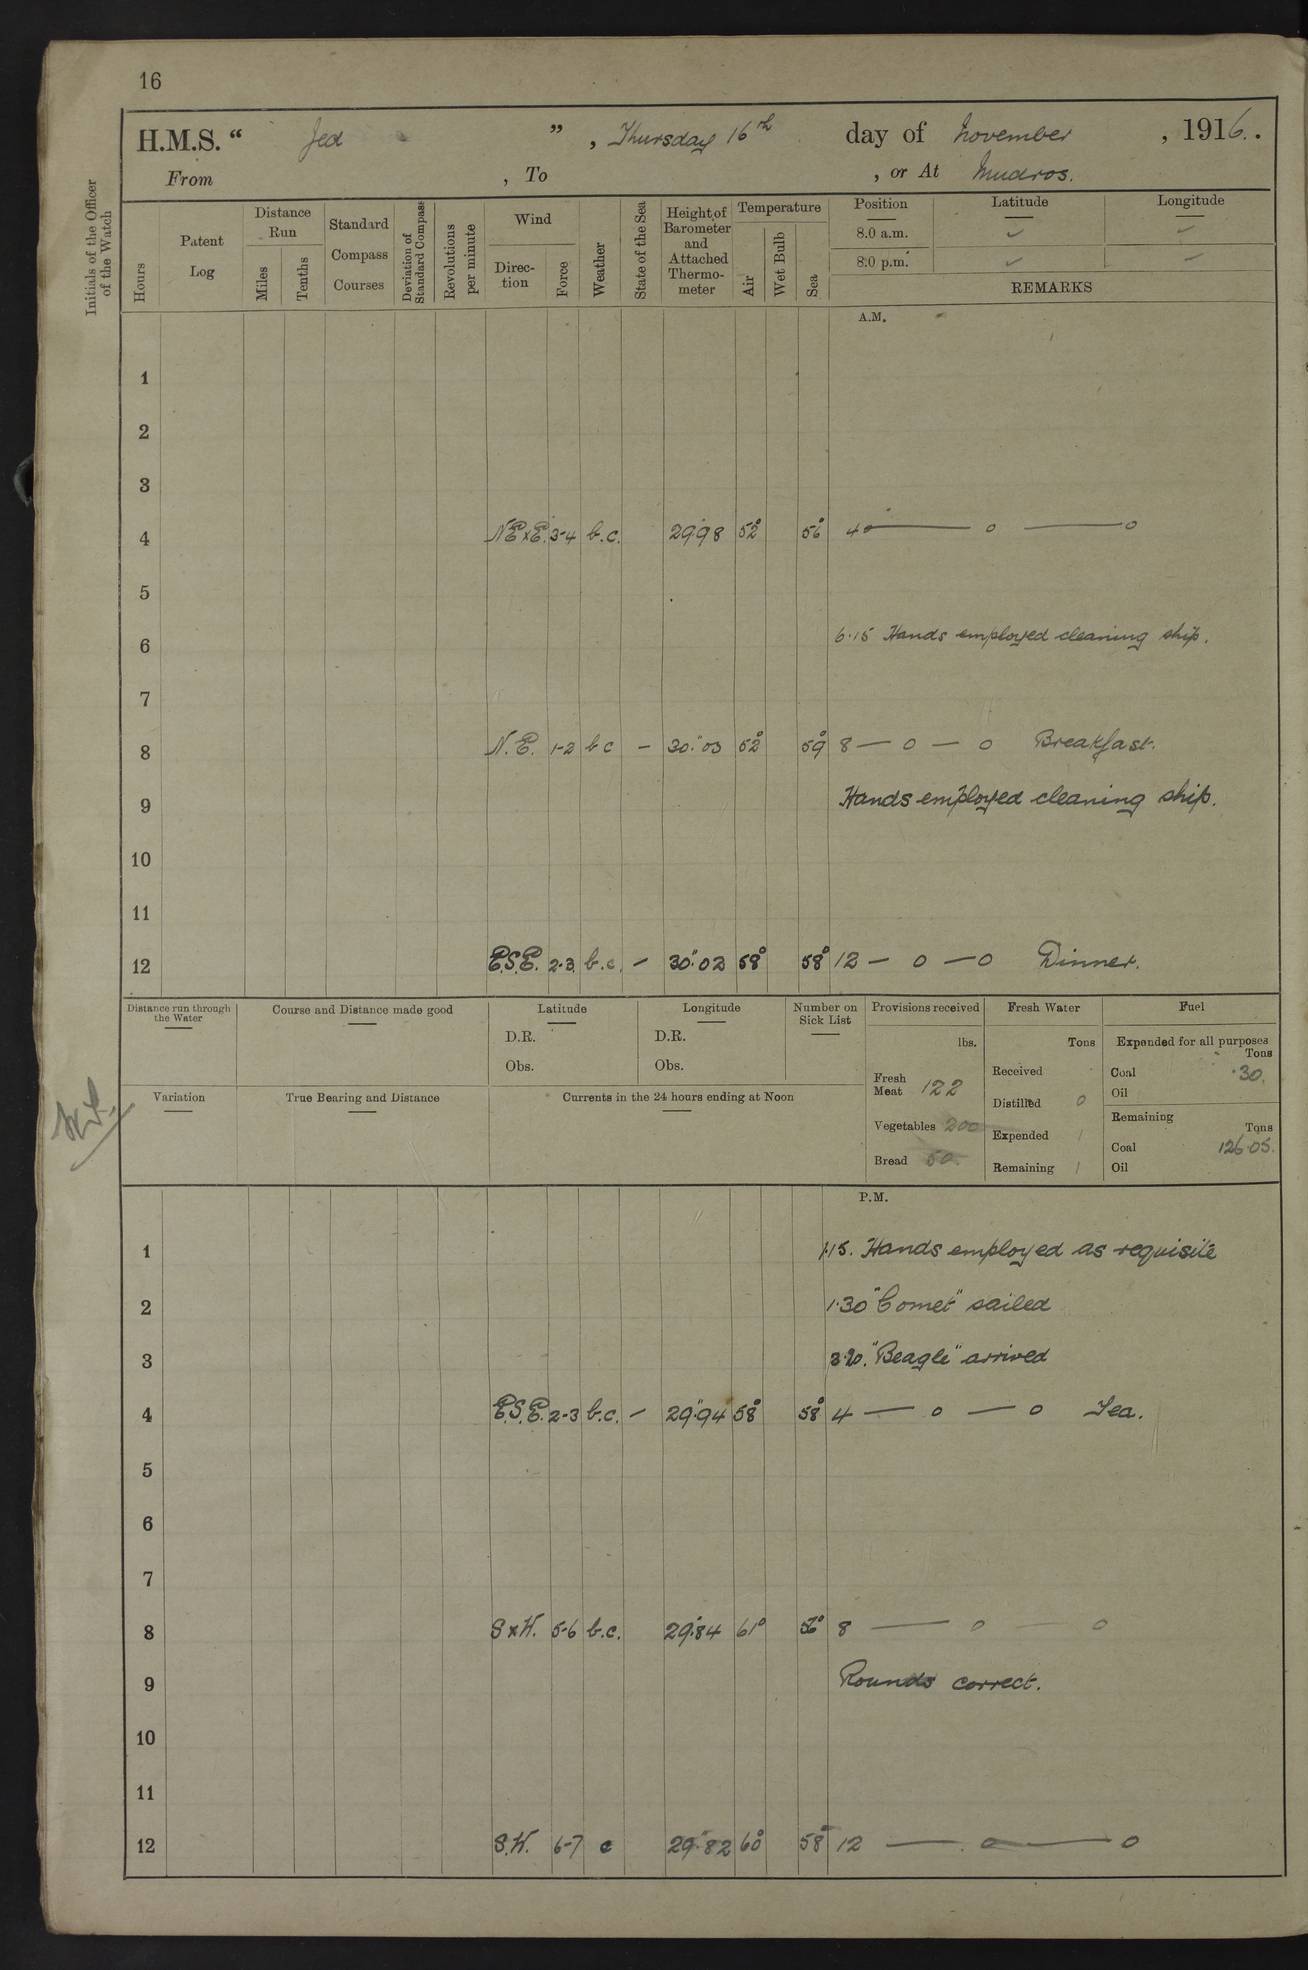 16
H.M.S. " Jed " , Thursday 16th day of November , 1916.
From , To , or At Mudros.
Initials of the Officer of the Watch
Hours
Patent Log
Distance Run
Miles
Tenths
Standard Compass Courses
Deviation of Standard Compass
Revolutions per minute
Wind
Direc-tion
Force
Weather
State of the Sea
Height of Barometer and Attached Thermo-meter
Temperature
Air
Wet Bulb
Sea
Position Latitude Longitude
8.0 a.m. ✓ ✓
8.0 p.m. ✓ ✓
REMARKS
A.M.
1
2
3
4 NE x E. 3-4 b.c. 29.98 52° 56° 4 o — o — o
5
6 6.15 Hands employed cleaning ship.
7
8 N.E. 1-2 b c — 30.03 52° 59° 8 — o — o Breakfast.
9 Hands employed cleaning ship.
10
11
12 E.S.E. 2-3 b.c. — 30.02 58° 58° 12 — o — o Dinner.
Distance run through the Water
Course and Distance made good
Latitude
D.R.
Obs.
Longitude
D.R.
Obs.
Number on Sick List
Provisions received
lbs.
Fresh Meat 122
Vegetables 200
Bread 50
Fresh Water
Tons
Received
Distilled 0
Expended 1
Remaining 1
Fuel
Expended for all purposes
Tons
Coal .30.
Oil
Remaining
Tons
Coal 126.05.
Oil
Variation
True Bearing and Distance
Currents in the 24 hours ending at Noon
P.M.
1 1.15. Hands employed as requisite
2 1.30 "Comet" sailed
3 3.20. "Beagle" arrived
4 E.S.E. 2-3 b.c. — 29.94 58° 58° 4 — o — o Tea.
5
6
7
8 S x W. 5-6 b.c. 29.84 61° 56° 8 — o — o
9 Rounds correct.
10
11
12 S.W. 6-7 c 29.82 60° 58° 12 — o — o